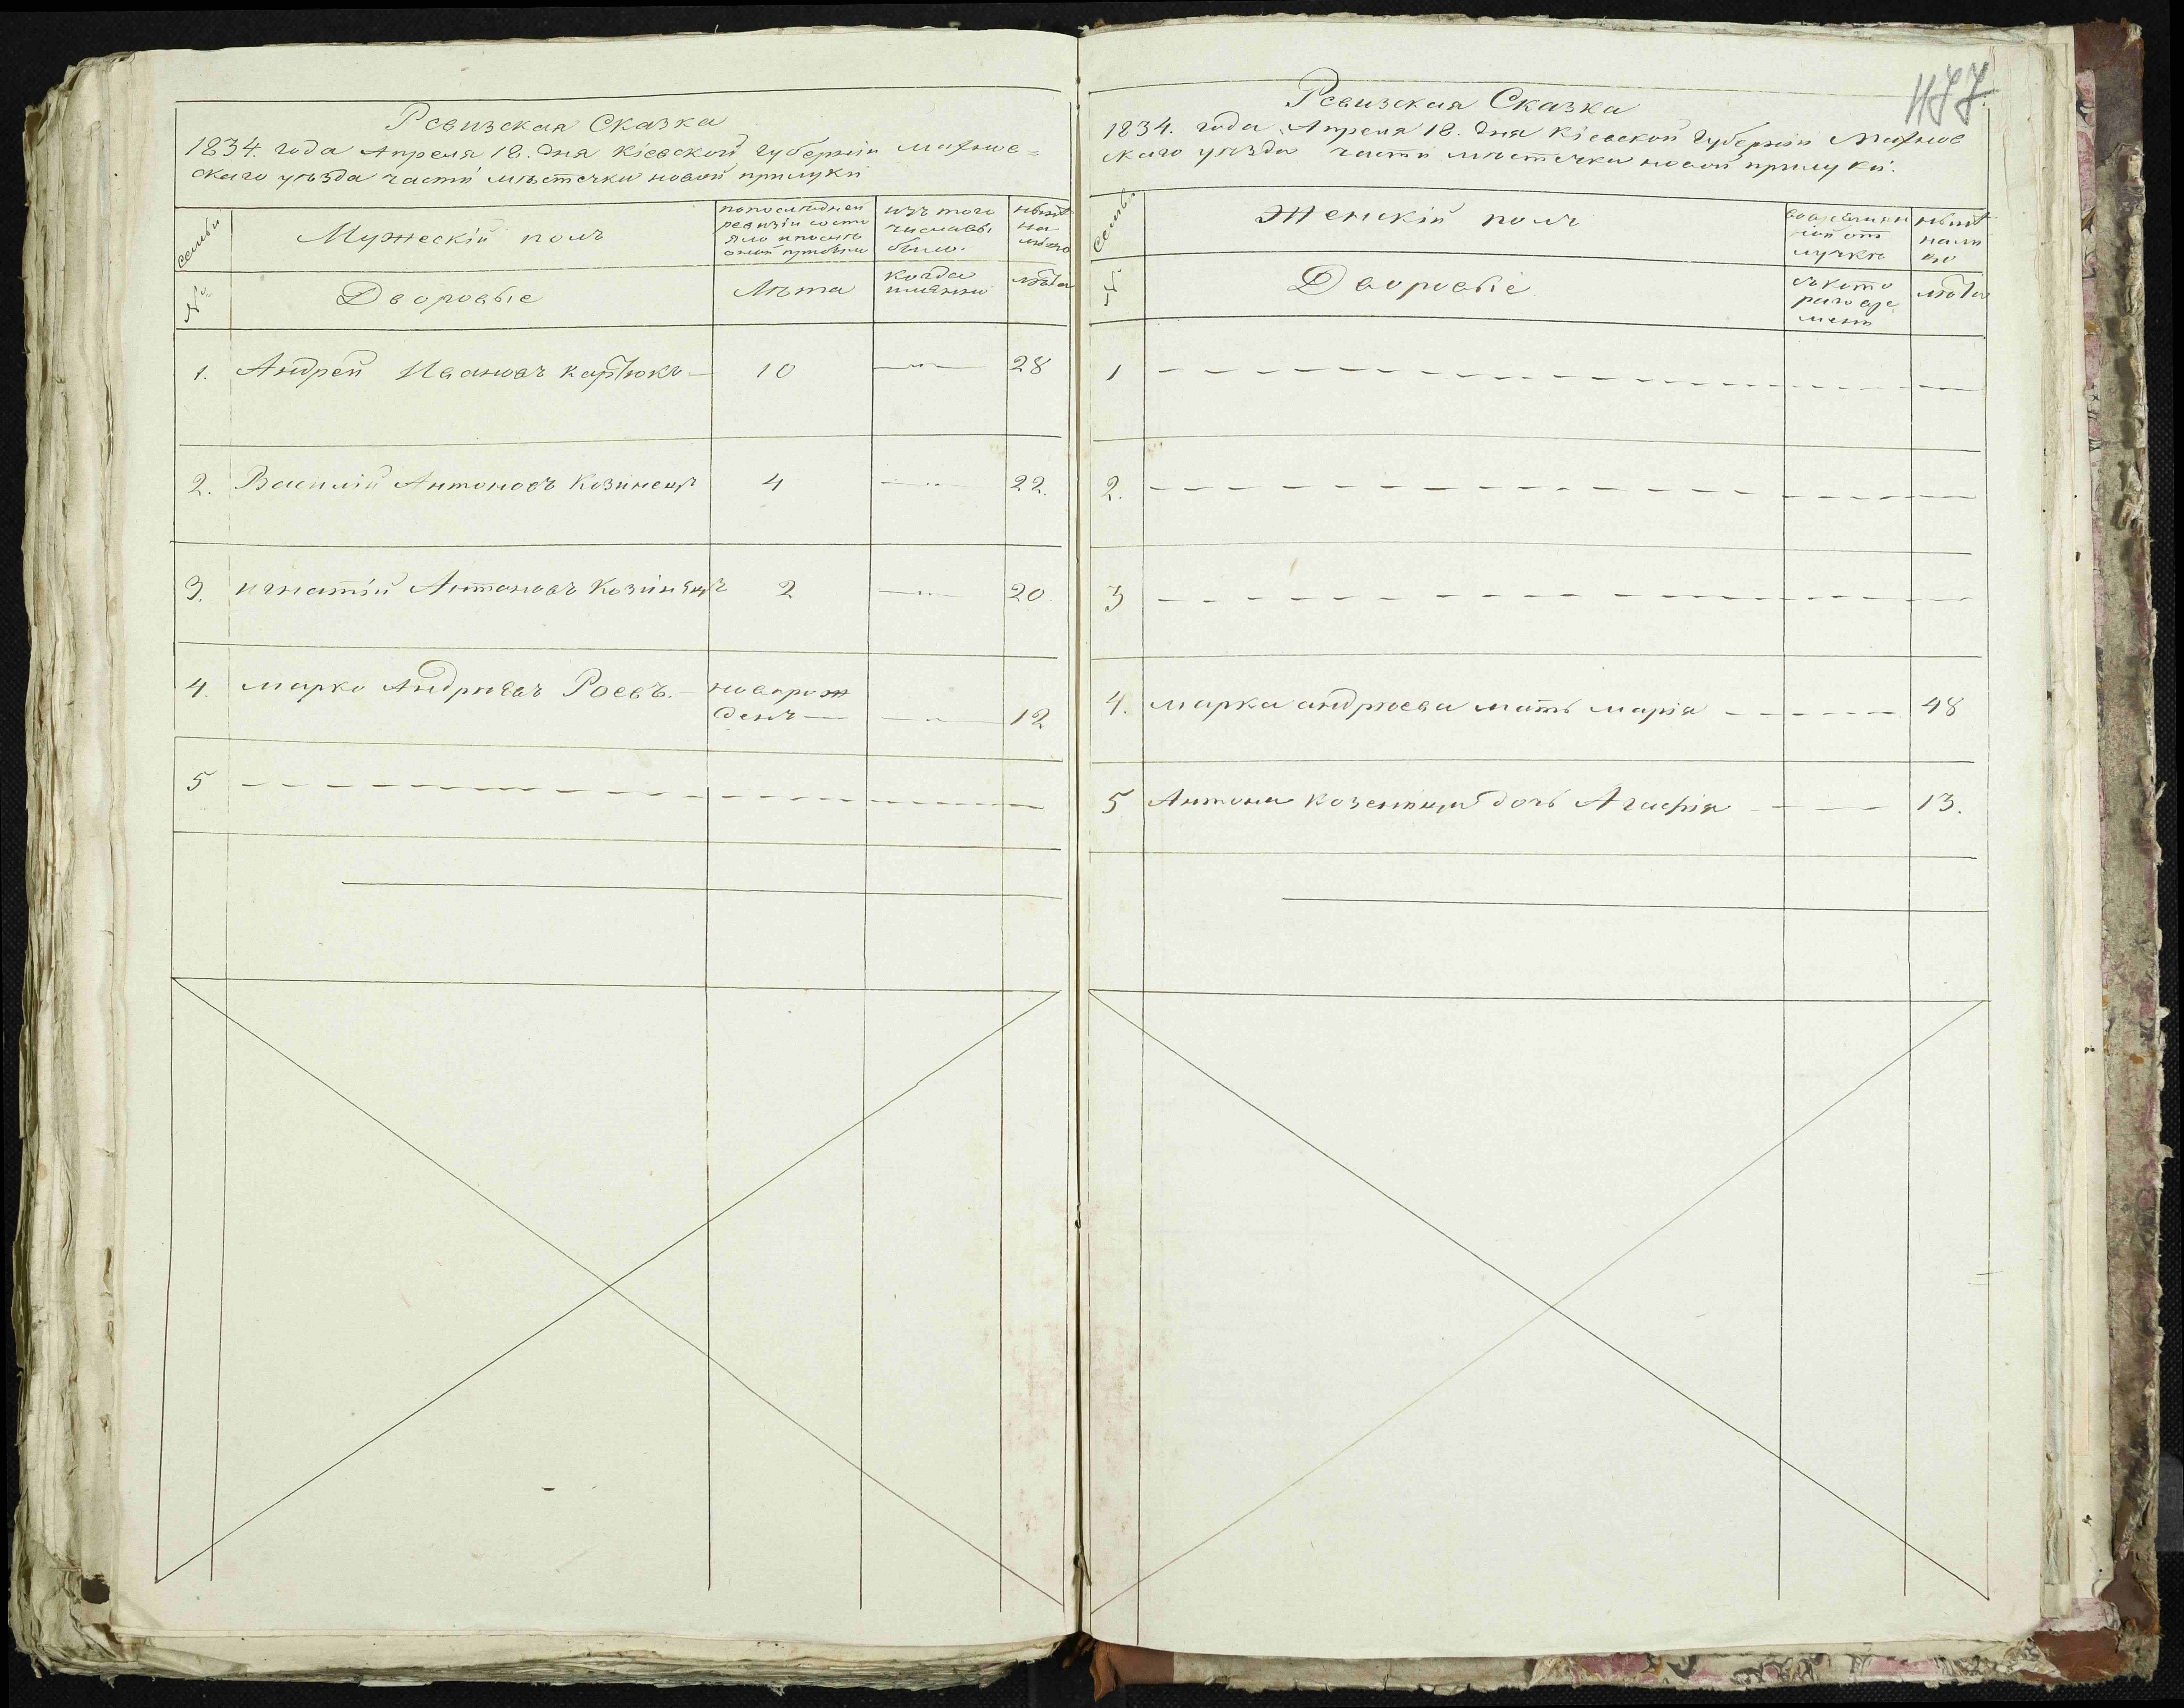 Ревизская Сказка
1834. года Апреля 18. дня Кіевской Губерніи Махнов=
скаго уѣзда части мѣстечки новой прилуки
семьи
Мужескій полъ
по последней
ревизіи состо
яло и после
оной прибыло
изъ того
числа вы
было.
нынѣ
на
лицо
№
Дворовые
Лѣта
когда
имянно
лѣта
1. Андрей Ивановъ Картюкъ — 10 — 28
2. Василій Антоновъ Козинецъ 4 — 22.
3. игнатій Антоновъ Козинецъ 2 — 20
4. марко Андрѣевъ Роевъ. — новорож
денъ — — 12
5
477
Ревизская Сказка
1834. года Апреля 18. дня Кіевской Губерніи Махнов
скаго уѣзда части мѣстечки новой прилуки.
семьи
Женскій полъ
во временн
ной от
лучке
нынѣ
нали
цо
№
Дворовые
съ кото
раго вре
мени
лѣта
1
2.
3
4. марка андрѣева мать марія — 48
5 Антона козеница дочь Агафія — 13.